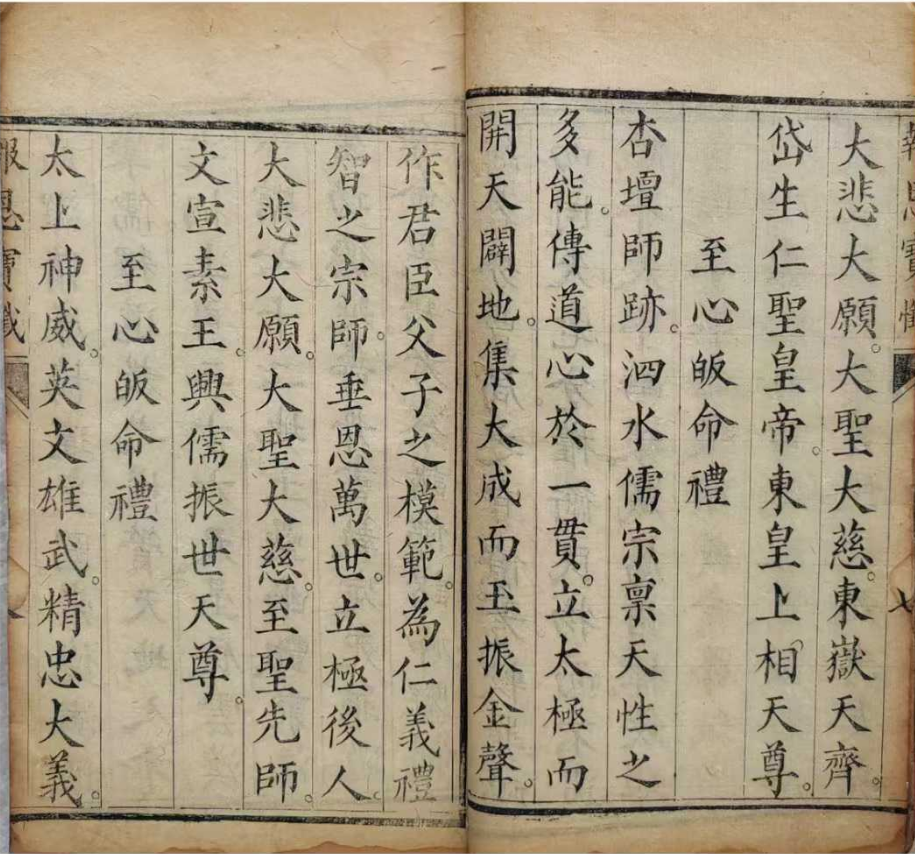 報恩寶懺
七
大悲大願。大聖大慈。東嶽天齊。
岱生仁聖皇帝。東皇上相天尊。
至心皈命禮
杏壇師跡。泗水儒宗稟天性之
多能。傳道心於一貫。立太極而
開天闢地。集大成而玉振金聲。
作君臣父子之模範。為仁義禮
智之宗師。垂恩萬世。立極後人。
大悲大願。大聖大慈。至聖先師。
文宣素王。興儒振世天尊。
至心皈命禮
太上神威。英文雄武。精忠大義。
報恩寶懺
八